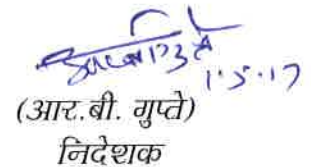 1.5.17
(आर.बी. गुप्ते)
निदेशक